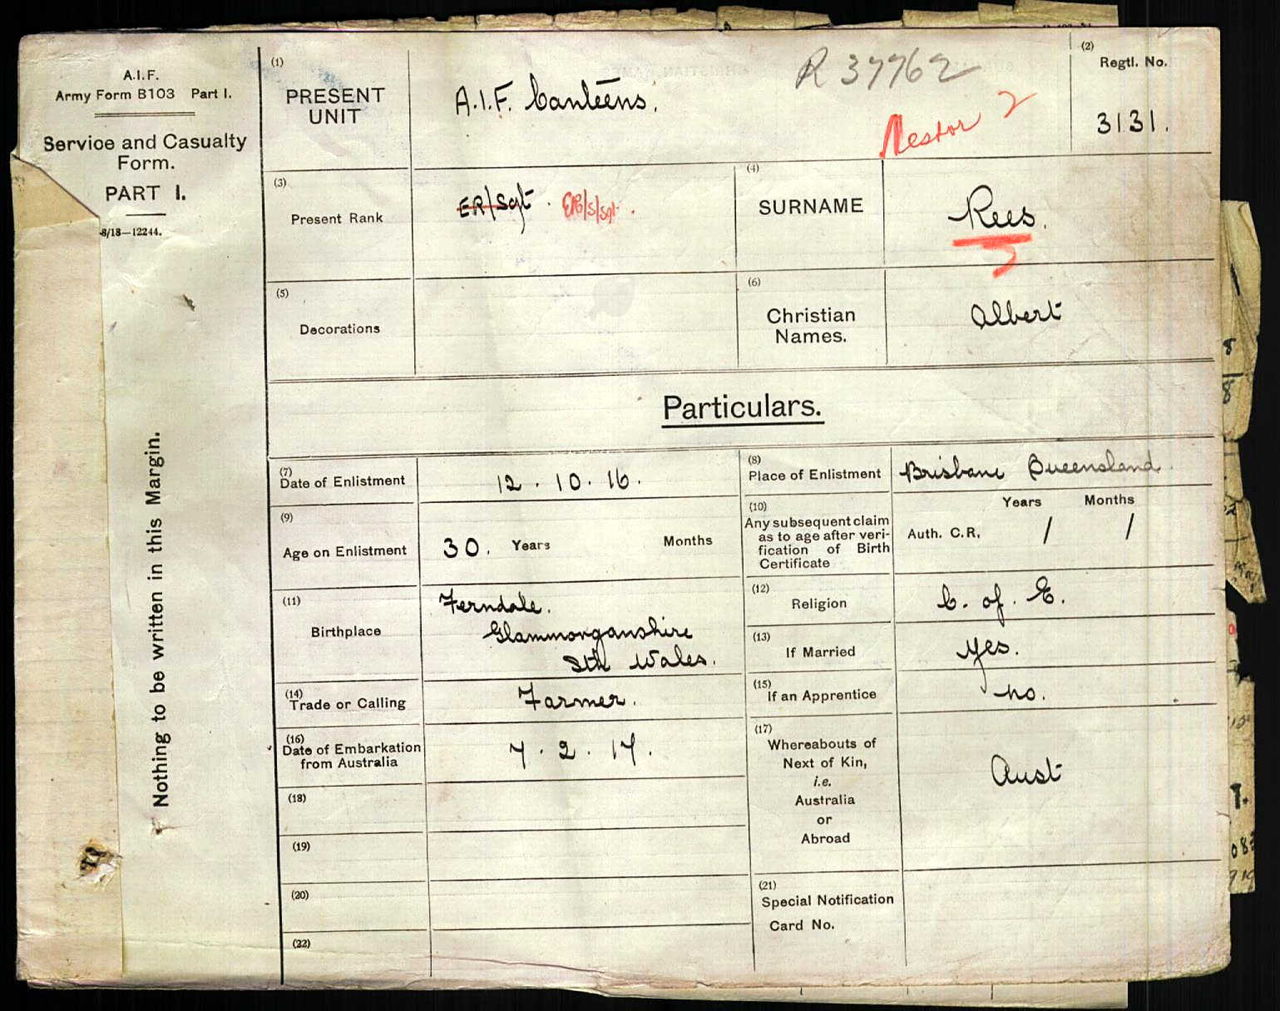 A.I.F.
Army Form B103 Part I.
Service and Casualty
Form.
PART I.
8/18—12244.
Nothing to be written in this Margin.
(1)
PRESENT
UNIT
A.I.F. Canteens.
R 37762
Nestor 2
(2)
Regtl. No.
3131.
(3)
Present Rank
ER/Sgt. ER/S/Sgt.
(4)
SURNAME
Rees.
(5)
Decorations
(6)
Christian
Names.
Albert
Particulars.
(7)
Date of Enlistment
12.10.16.
(8)
Place of Enlistment
Brisbane Queensland.
(9)
Age on Enlistment
30. Years Months
(10)
Any subsequent claim
as to age after veri-
fication of Birth
Certificate
Years Months
Auth. C.R. / /
(11)
Birthplace
Ferndale.
Glammorganshire
Sth Wales.
(12)
Religion
C. of. E.
(13)
If Married
yes.
(14)
Trade or Calling
Farmer.
(15)
If an Apprentice
no.
(16)
Date of Embarkation
from Australia
7.2.17.
(17)
Whereabouts of
Next of Kin,
i.e.
Australia
or
Abroad
Aust
(18)
(19)
(20)
(21)
Special Notification
Card No.
(22)